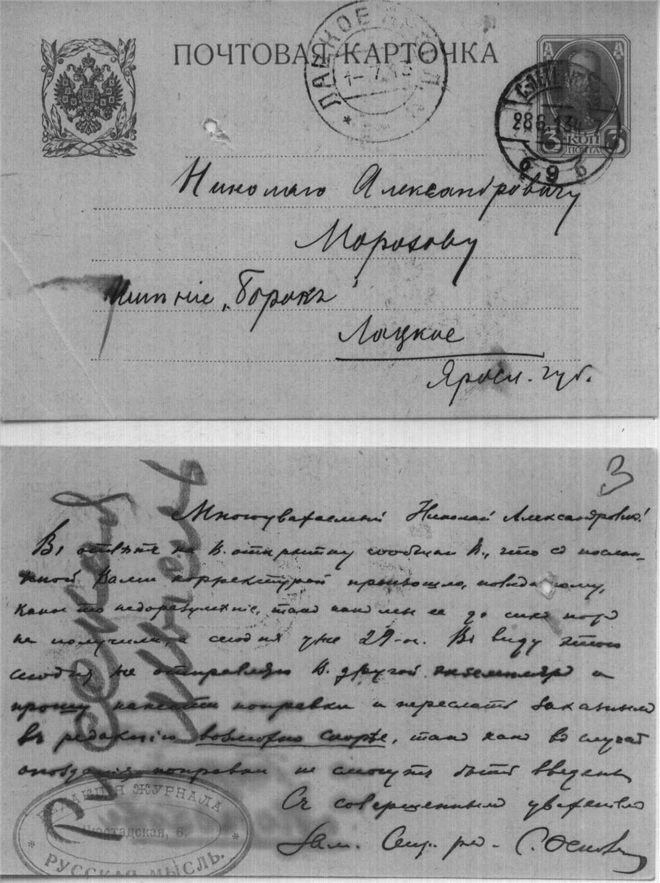 ПОЧТОВАЯ КАРТОЧКА
ЛАЦКОЕ
28 6 13
3 КОП
ПОЧТА
Николаю Александровичу
Морозову
имѣніе „Борокъ"
Лацкое
Яросл. губ.
3
Русская
Мысль
Многоуважаемый Николай Александровичъ!
Въ отвѣтъ на В. открытку сообщаю В., что съ послан-
ной Вами корректурой произошло, повидимому,
какое то недоразумѣніе, такъ какъ мы ее до сихъ поръ
не получили, а сегодня уже 29-е. Въ виду этого
сегодня же отправляю В. другой экземпляръ и
прошу нанести поправки и переслать заказнымъ
въ редакцію возможно скорѣе, такъ какъ въ случаѣ
опозданія поправки не смогутъ быть введены
Съ совершеннымъ уваженіемъ
Зам. Секр. ред.
РЕДАКЦІЯ ЖУРНАЛА
РУССКАЯ МЫСЛЬ